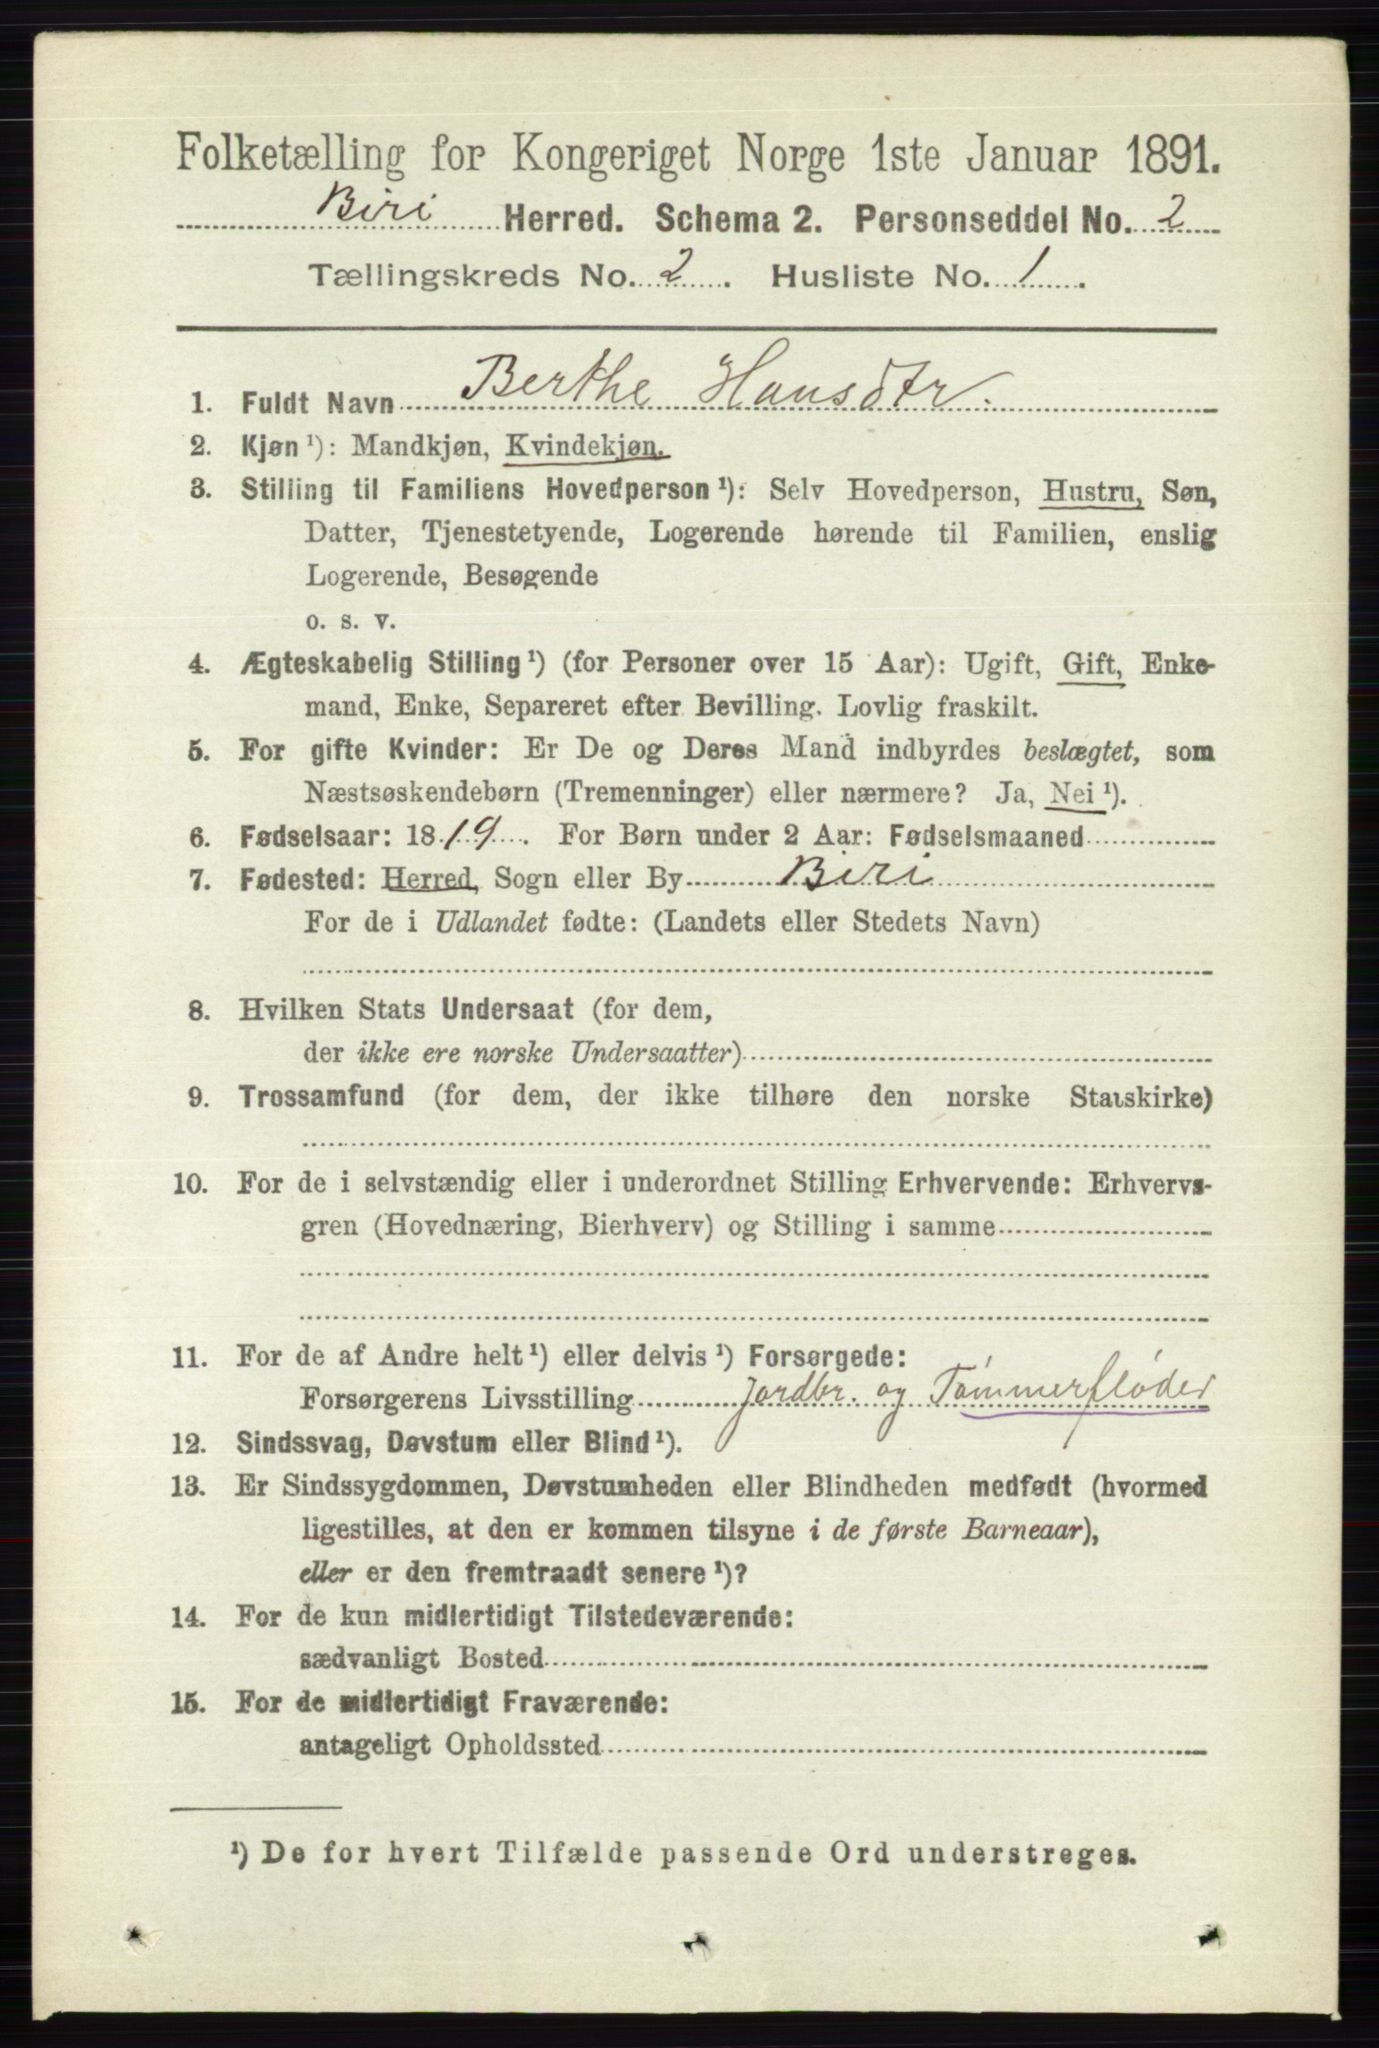 Folketælling for Kongeriget Norge 1ste Januar 1891.
Biri Herred. Schema 2. Personseddel No. 2
Tællingskreds No. 2. Husliste No. 1.
1. Fuldt Navn Berthe Hansdtr.
2. Kjøn ¹): Mandkjøn, Kvindekjøn.
3. Stilling til Familiens Hovedperson ¹): Selv Hovedperson, Hustru, Søn,
Datter, Tjenestetyende, Logerende hørende til Familien, enslig
Logerende, Besøgende
o. s. v.
4. Ægteskabelig Stilling ¹) (for Personer over 15 Aar): Ugift, Gift, Enke-
mand, Enke, Separeret efter Bevilling. Lovlig fraskilt.
5. For gifte Kvinder: Er De og Deres Mand indbyrdes beslægtet, som
Næstsøskendebørn (Tremenninger) eller nærmere? Ja, Nei ¹).
6. Fødselsaar: 1819. For Børn under 2 Aar: Fødselsmaaned
7. Fødested: Herred, Sogn eller By Biri
For de i Udlandet fødte: (Landets eller Stedets Navn)
8. Hvilken Stats Undersaat (for dem,
der ikke ere norske Undersaatter)
9. Trossamfund (for dem, der ikke tilhøre den norske Statskirke)
10. For de i selvstændig eller i underordnet Stilling Erhvervende: Erhvervs-
gren (Hovednæring, Bierhverv) og Stilling i samme
11. For de af Andre helt ¹) eller delvis ¹) Forsørgede:
Forsørgerens Livsstilling Jordbr. og Tømmerfløder
12. Sindssvag, Døvstum eller Blind ¹).
13. Er Sindssygdommen, Døvstumheden eller Blindheden medfødt (hvormed
ligestilles, at den er kommen tilsyne i de første Barneaar),
eller er den fremtraadt senere ¹)?
14. For de kun midlertidigt Tilstedeværende:
sædvanligt Bosted
15. For de midlertidigt Fraværende:
antageligt Opholdssted
¹) De for hvert Tilfælde passende Ord understreges.